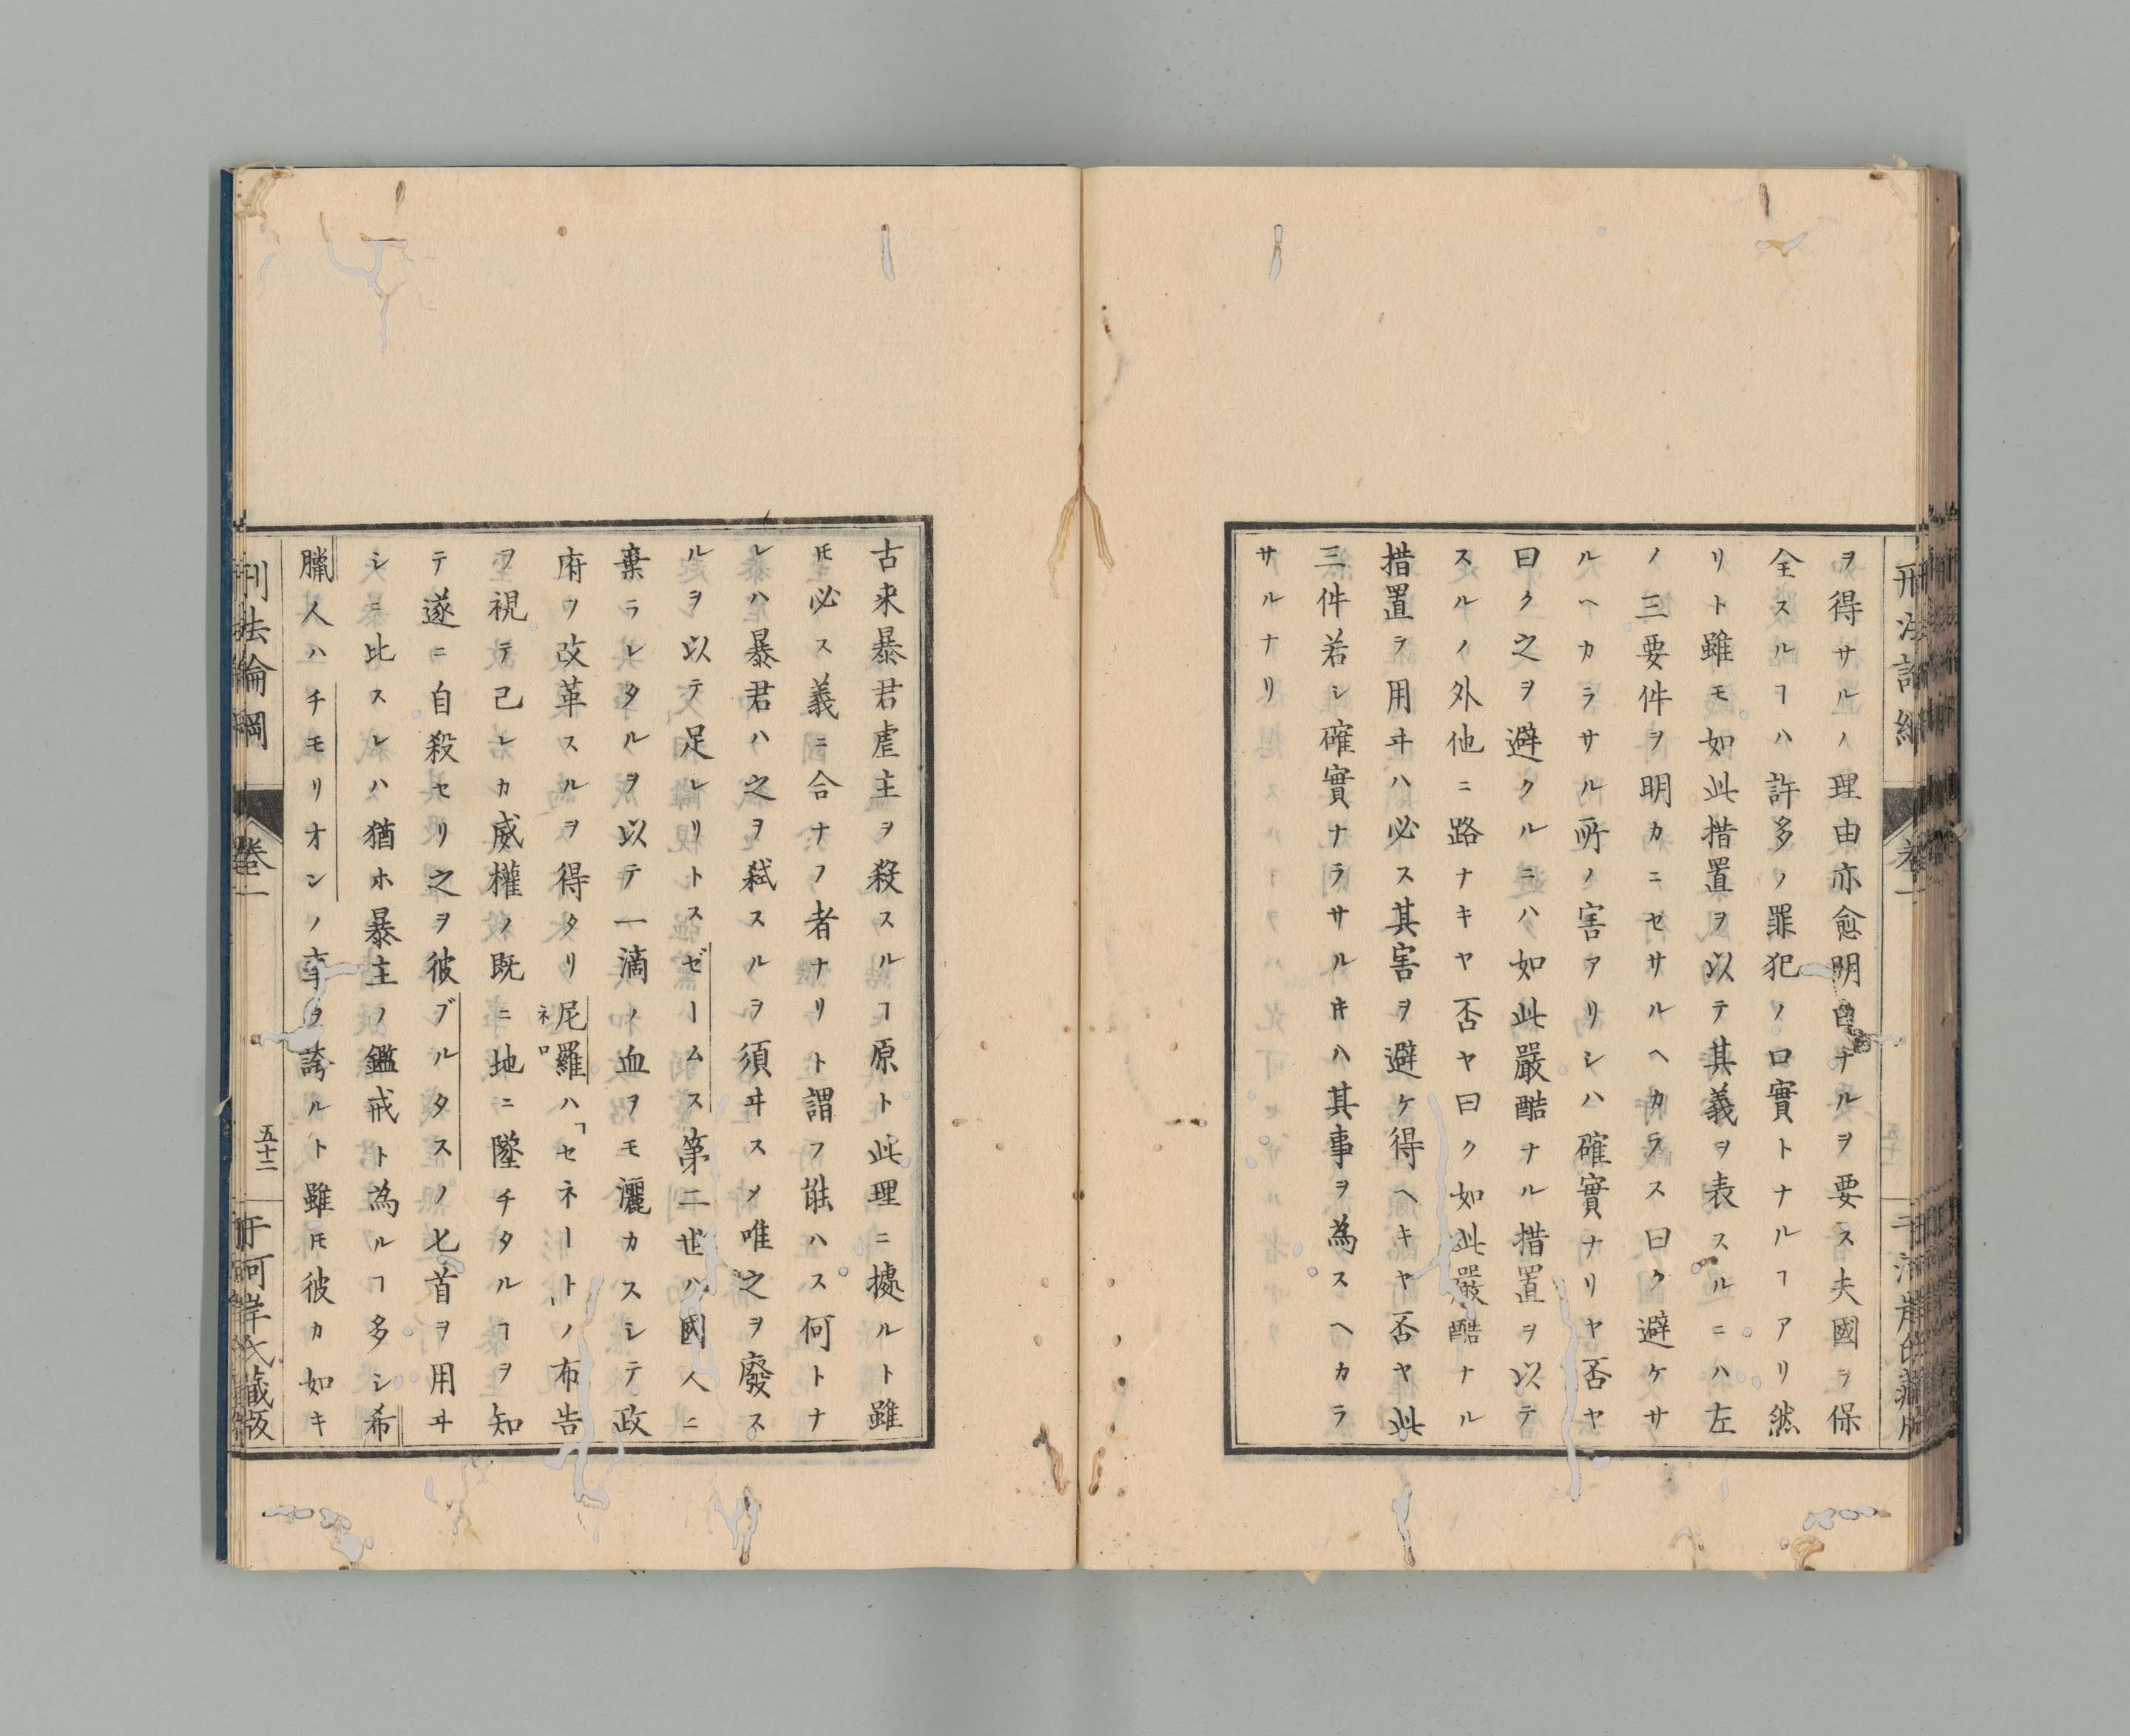 ヲ得サルノ理由亦愈明白ナルヲ要ス夫國ヲ保
全スルヿハ許多ノ罪犯ノ口實トナルヿアリ然
リト雖モ如此措置ヲ以テ其義ヲ表スルニハ左
ノ三要件ヲ明カニセサルヘカラス曰ク避ケサ
ルヘカラサル所ノ害アリシハ確實ナリヤ否ヤ
曰ク之ヲ避クルニハ如此嚴酷ナル措置ヲ以テ
スルノ外他ニ路ナキヤ否ヤ曰ク如此嚴酷ナル
措置ヲ用ヰハ必ス其害ヲ避ケ得ヘキヤ否ヤ此
三件若シ確實ナラサルキハ其事ヲ為スヘカラ
サルナリ
古来暴君虐主ヲ殺スルヿ原ト此理ニ據ルト雖
𪜈必ス義ニ合ナフ者ナリト謂フ能ハス何トナ
レハ暴君ハ之ヲ弑スルヲ須ヰスメ唯之ヲ廢ス
ルヲ以テ足レリトスゼームス第二世ハ國人ニ
棄ラレタルヲ以テ一滴ノ血ヲモ灑カスシテ政
府ヲ改革スルヲ得タリ尼羅ハ「セネート」ノ布告
ネロ
ヲ視テ己レカ威權ノ既ニ地ニ墜チタルヿヲ知
テ遂ニ自殺セリ之ヲ彼ブルタスノ匕首ヲ用ヰ
シニ比スレハ猶ホ暴主ノ鑑戒ト為ルヿ多シ希
臘人ハチモリオンノ幸ヲ誇ルト雖𪜈彼カ如キ
刑法論綱
卷一
五十二
于河岸氏藏版